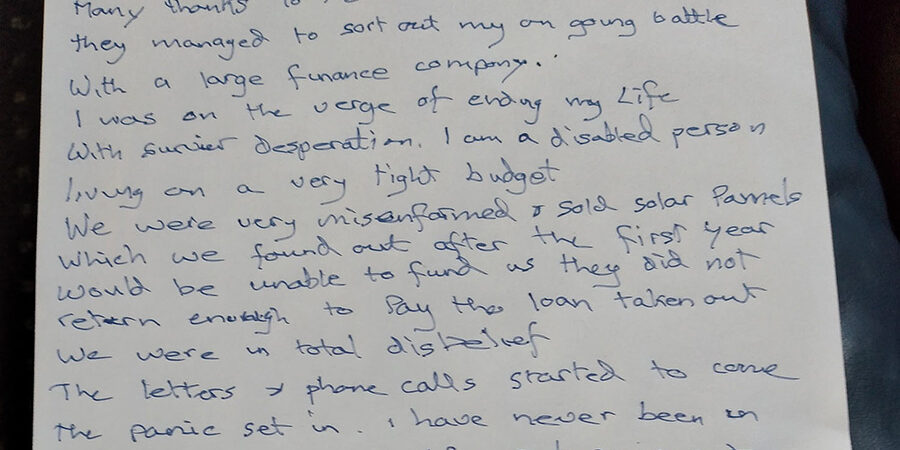 Many thanks to
they managed to sort out my on going battle
With a large finance company..
I was on the verge of ending my Life
With survier desperation. I am a disabled person
living on a very tight budget
We were very misenformed & sold solar Pamels
which we found out after the first year
would be unable to fund as they did not
retern enough to Pay the loan taken out
We were in total disbeleif
The letters & phone calls started to come
the panic set in. i have never been in